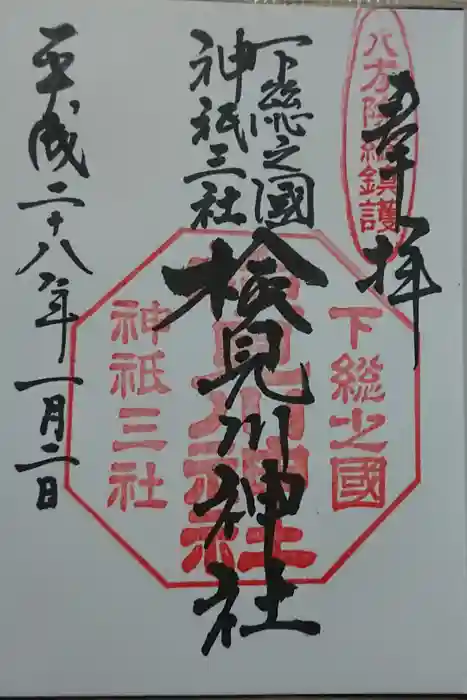 奉拝
八方除総鎮護
下總之國
神祇三社
検見川神社
下總之國
検見川神社
神祇三社
平成二十八年一月二日